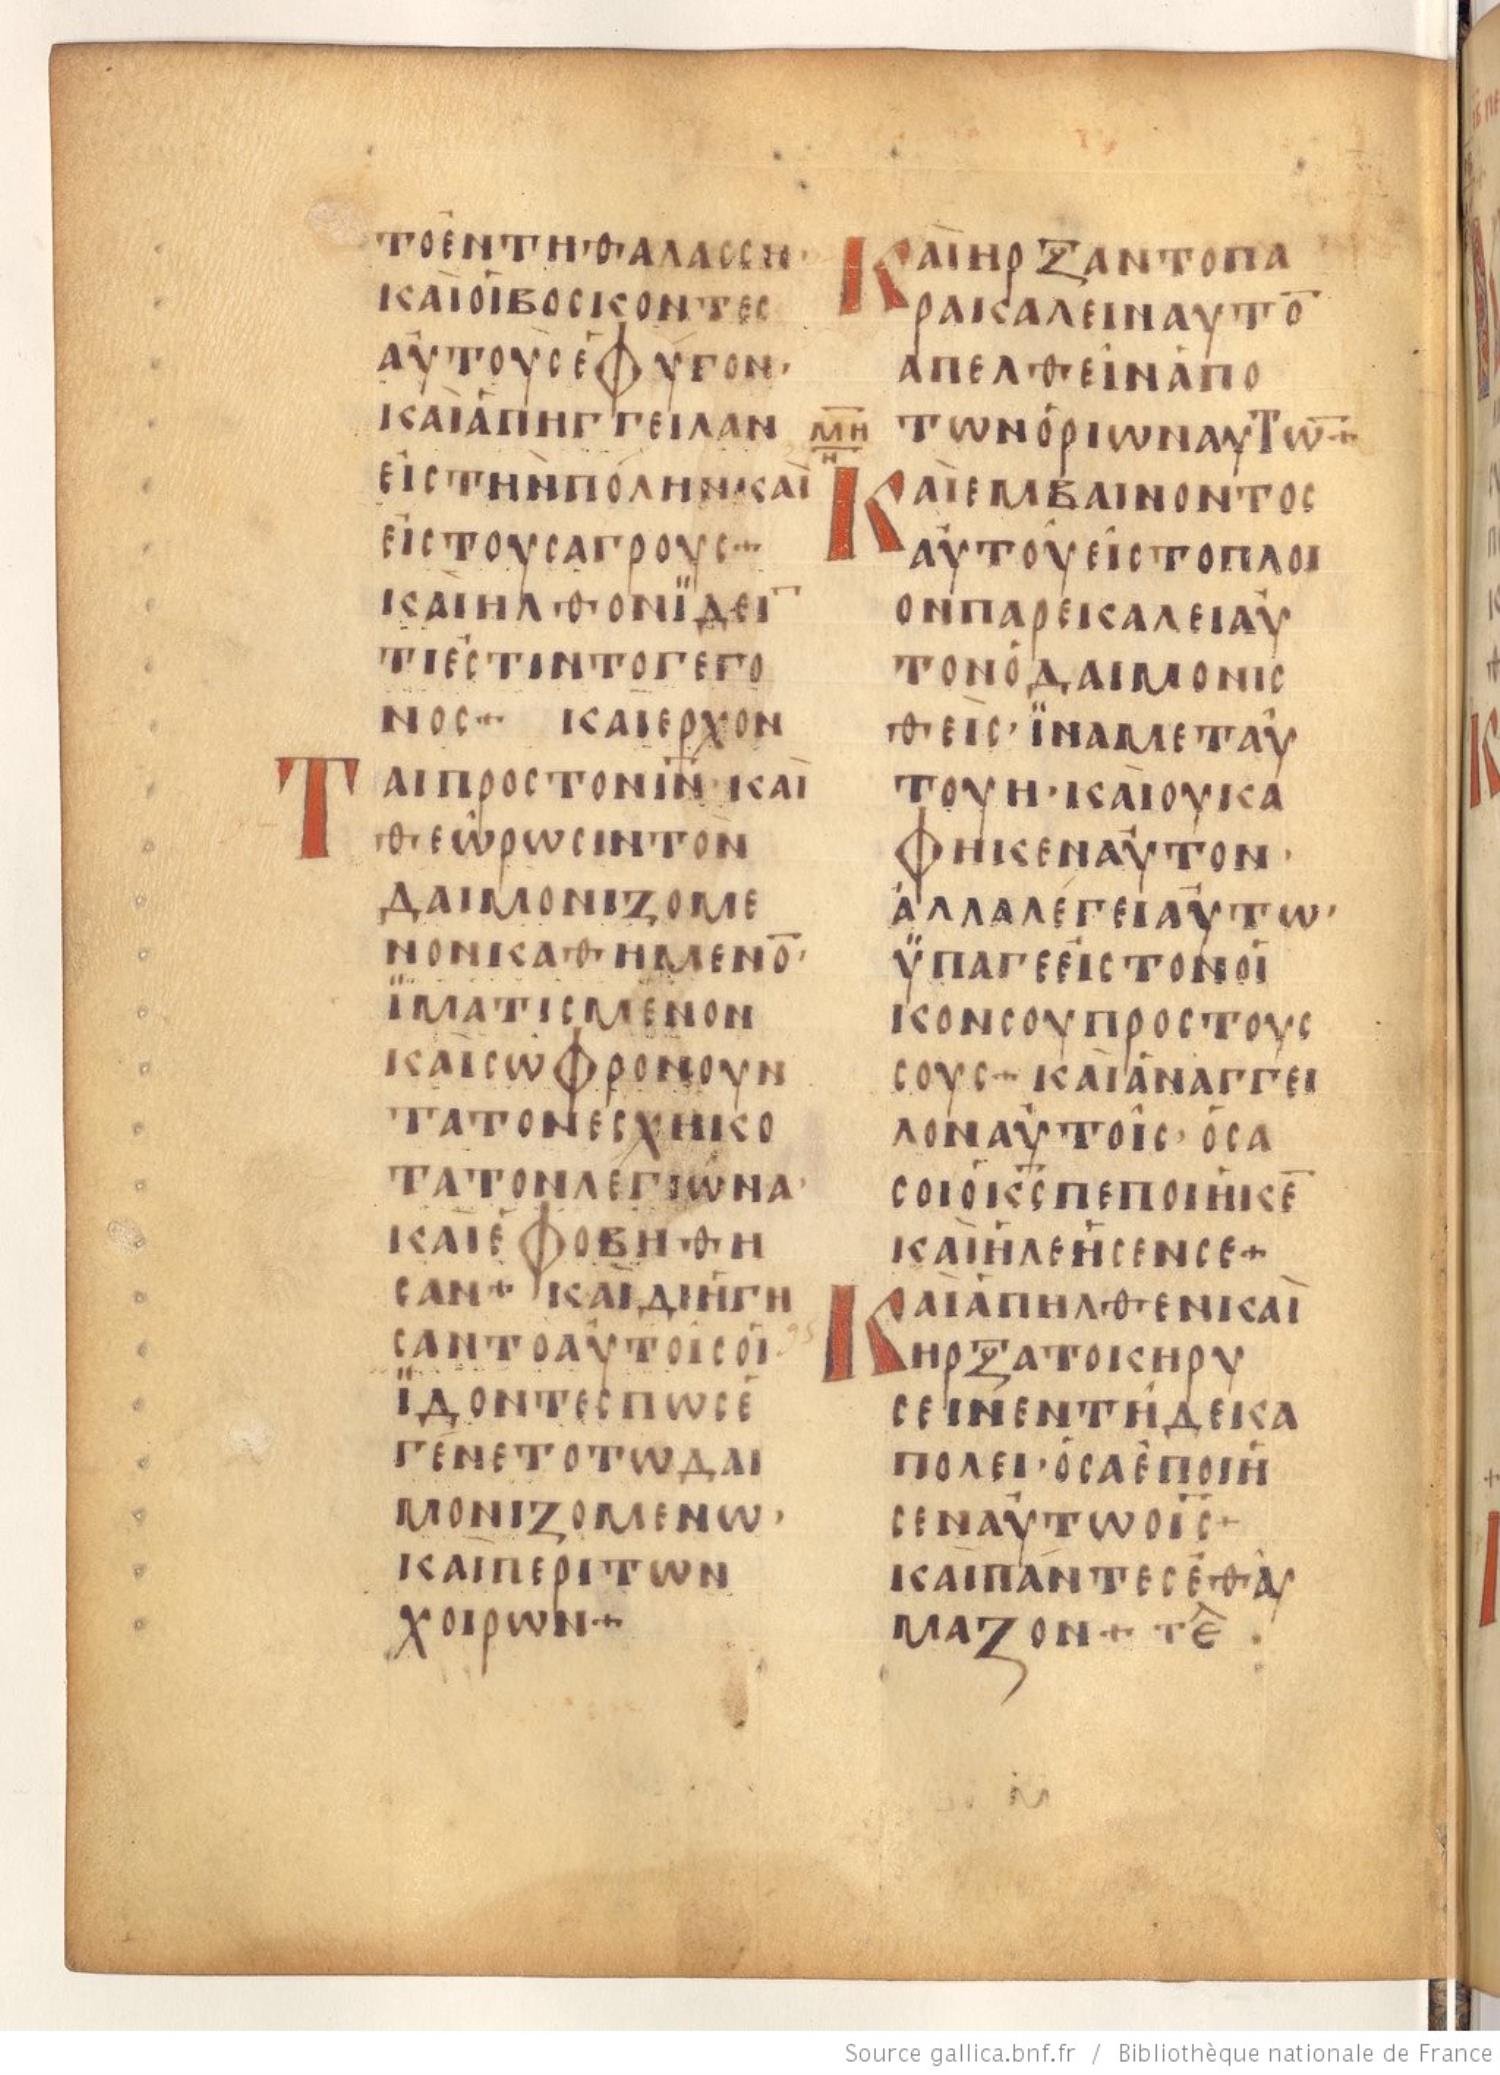 ΤΟΕΝΤΗΘΑΛΑССΗ·
ΚΑΙΟΙΒΟСΚΟΝΤΕС
ΑΥΤΟΥСΕΦΥΓΟΝ·
ΚΑΙΑΠΗΓΓΕΙΛΑΝ
ΕΙСΤΗΝΠΟΛΗΝΚΑΙ
ΕΙСΤΟΥСΑΓΡΟΥС+
ΚΑΙΗΛΘΟΝΪΔΕΙ̅
ΤΙΕСΤΙΝΤΟΓΕΓΟ
ΝΟС+ ΚΑΙΕΡΧΟΝ
ΤΑΙΠΡΟСΤΟΝΙ̅Ν̅·ΚΑΙ
ΘΕΩΡΩСΙΝΤΟΝ
ΔΑΙΜΟΝΙΖΟΜΕ
ΝΟΝΚΑΘΗΜΕΝΟ̅·
ΪΜΑΤΙСΜΕΝΟΝ
ΚΑΙСΩΦΡΟΝΟΥΝ
ΤΑΤΟΝΕСΧΗΚΟ
ΤΑΤΟΝΛΕΓΙΩΝΑ·
ΚΑΙΕΦΟΒΗΘΗ
СΑΝ+ ΚΑΙΔΙΗΓΗ
СΑΝΤΟΑΥΤΟΙСΟΙ
ΪΔΟΝΤΕСΠΩСΕ
ΓΕΝΕΤΟΤΩΔΑΙ
ΜΟΝΙΖΟΜΕΝΩ·
ΚΑΙΠΕΡΙΤΩΝ
ΧΟΙΡΩΝ+
ΚΑΙΗΡΞΑΝΤΟΠΑ
ΡΑΚΑΛΕΙΝΑΥΤΟ̅
ΑΠΕΛΘΕΙΝΑΠΟ
ΤΩΝΟΡΙΩΝΑΥΤΩ̅+
Μ̅Η̅
Η
ΚΑΙΕΜΒΑΙΝΟΝΤΟС
ΑΥΤΟΥΕΙСΤΟΠΛΟΙ
ΟΝΠΑΡΕΚΑΛΕΙΑΥ
ΤΟΝΟΔΑΙΜΟΝΙС
ΘΕΙС·ΪΝΑΜΕΤΑΥ
ΤΟΥΗ·ΚΑΙΟΥΚΑ
ΦΗΚΕΝΑΥΤΟΝ·
ΑΛΛΑΛΕΓΕΙΑΥΤΩ·
ΫΠΑΓΕΕΙСΤΟΝΟΙ
ΚΟΝСΟΥΠΡΟСΤΟΥС
СΟΥС+ΚΑΙΑΝΑΓΓΕΙ
ΛΟΝΑΥΤΟΙС·ΟСΑ
СΟΙΟΚ̅С̅ΠΕΠΟΙΗΚΕ̅
ΚΑΙΗΛΕΗСΕΝСΕ+
ΚΑΙΑΠΗΛΘΕΝΚΑΙ
ΗΡΞΑΤΟΚΗΡΥ
СΕΙΝΕΝΤΗΔΕΚΑ
ΠΟΛΕΙ·ΟСΑΕΠΟΙΗ
СΕΝΑΥΤΩΟΙ̅С̅+
ΚΑΙΠΑΝΤΕСΕΘΑΥ
ΜΑΖΟΝ+ ΤΕ
Source gallica.bnf.fr / Bibliothèque nationale de France